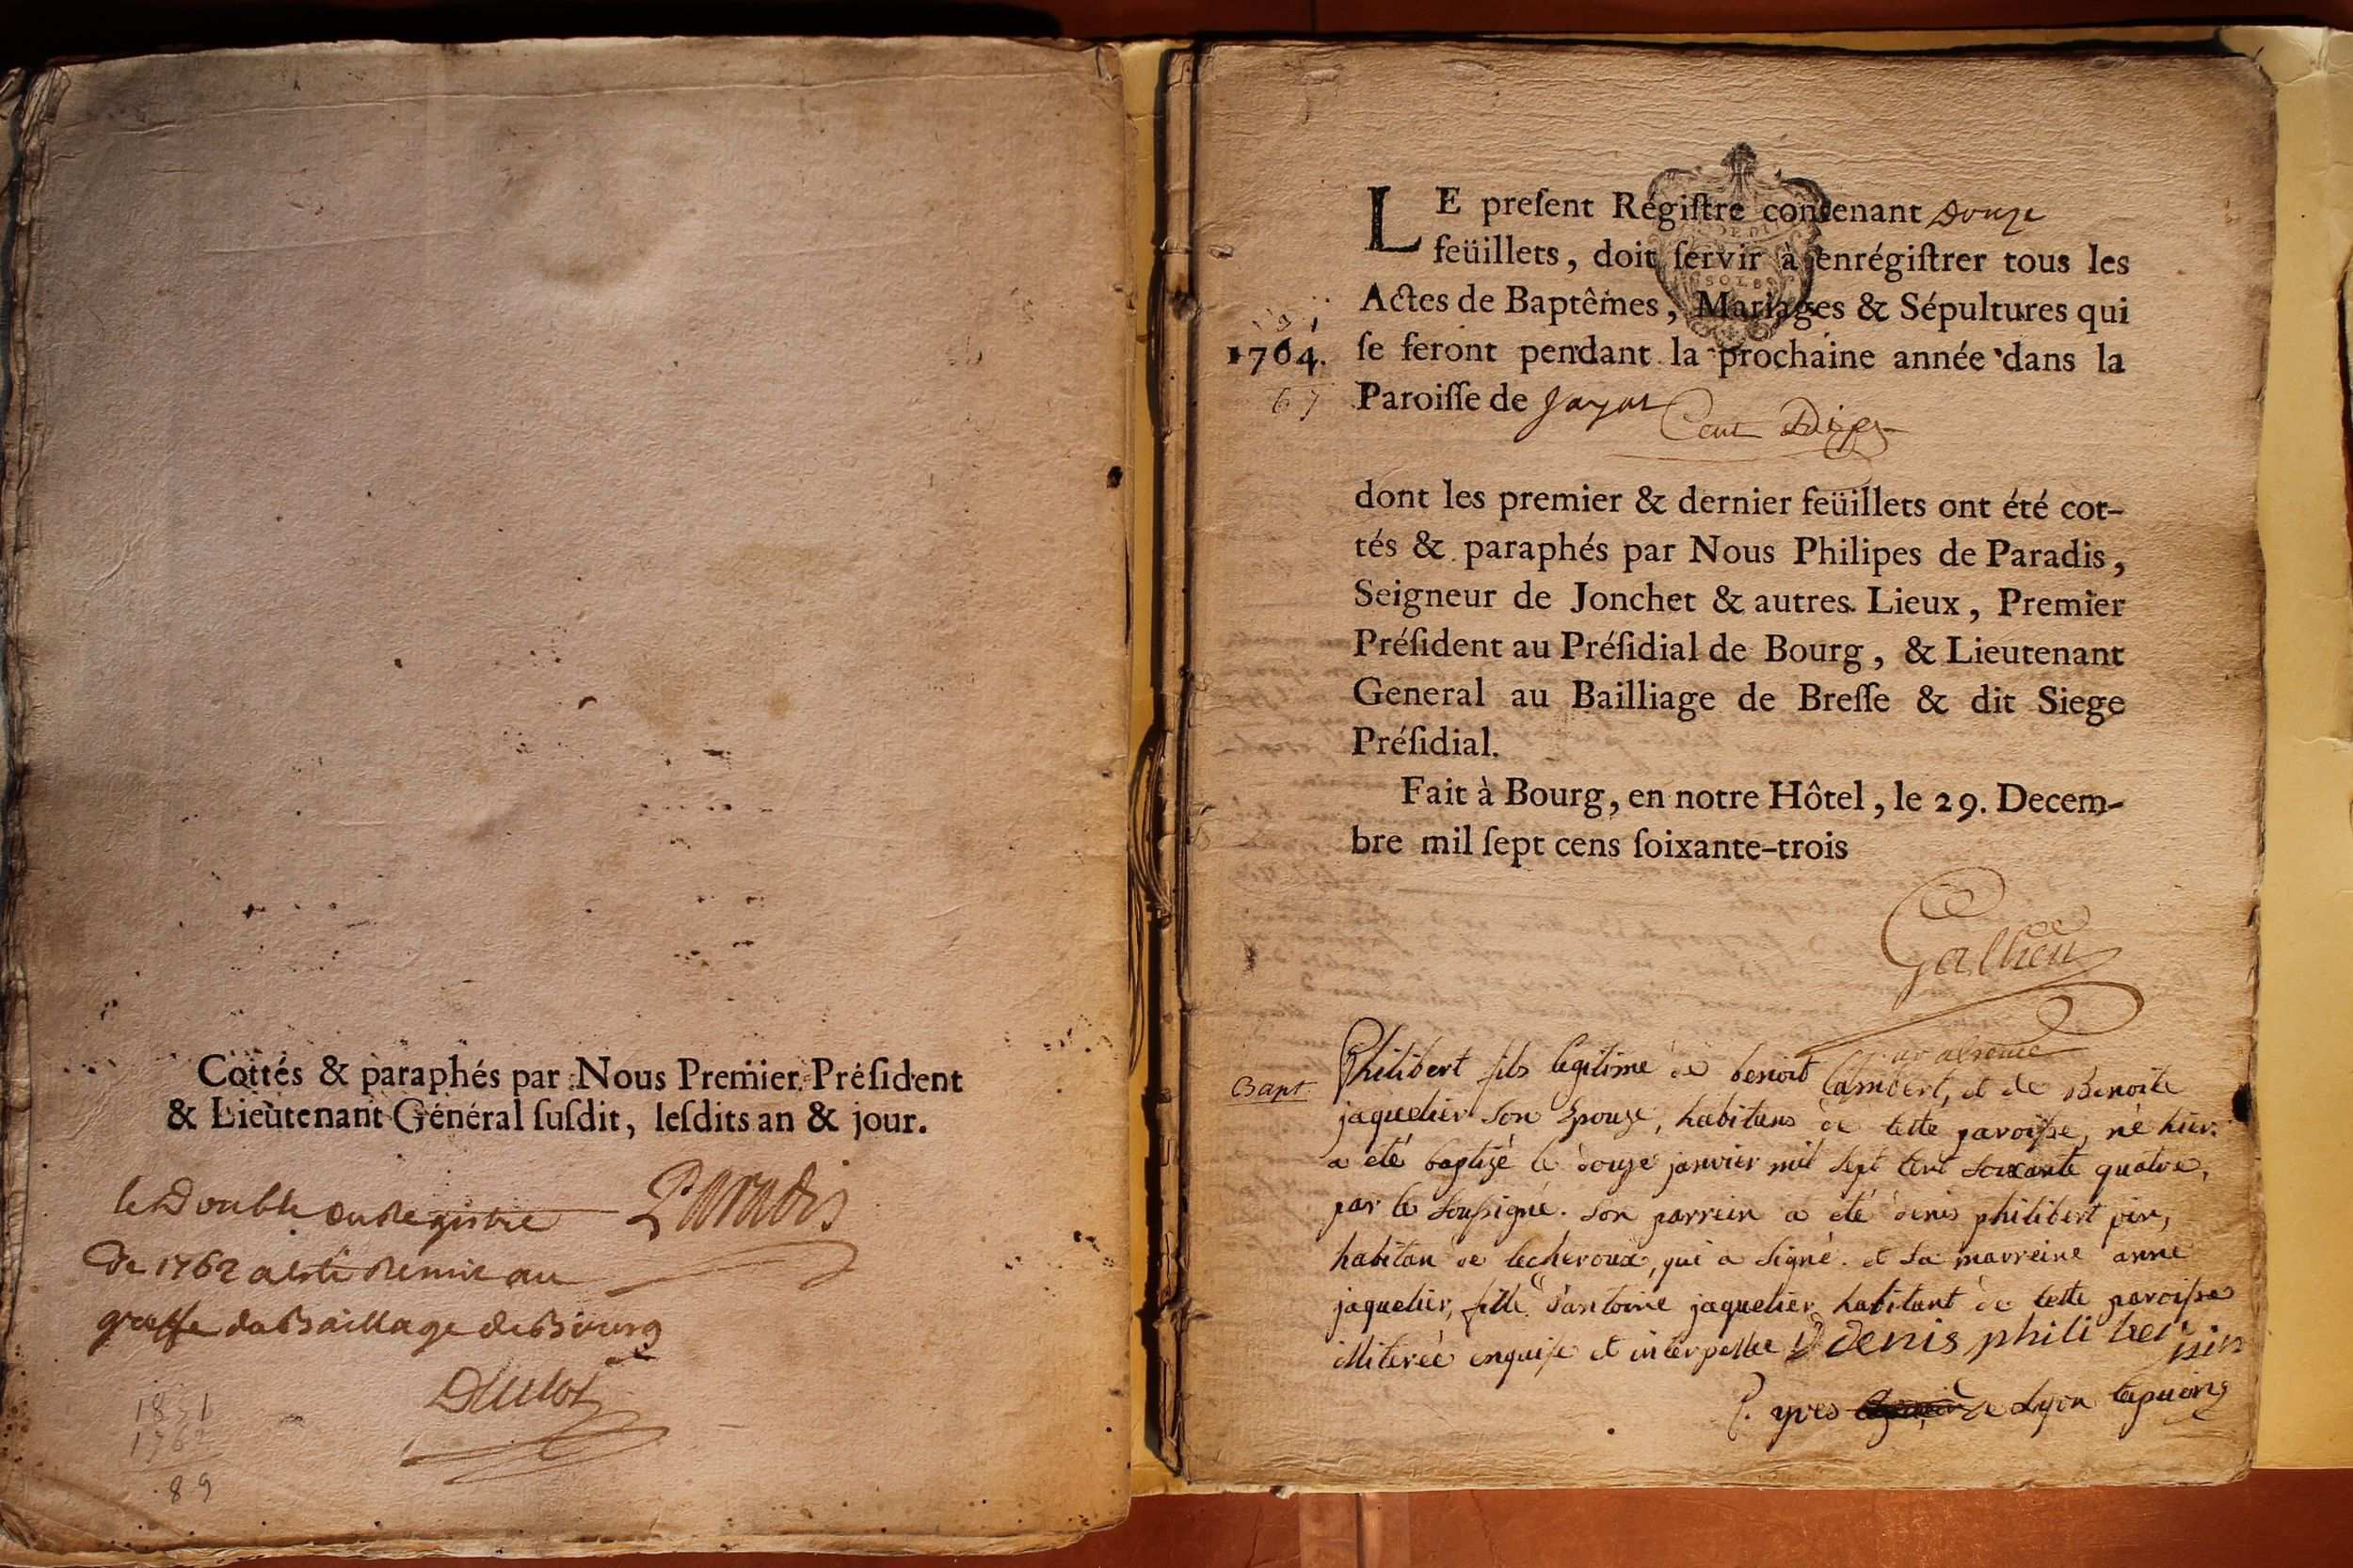 Cottés & paraphés par Nous Premier Préſident
& Lieutenant Général ſuſdit, leſdits an & jour.
le Double du Registre Paradis
de 1762 a esté Remis au
greffe du Baillage de Bourg
1851
1762
89
LE preſent Régiſtre contenant Douze
feüillets, doit ſervir à enrégiſtrer tous les
Actes de Baptêmes, Mariages & Sépultures qui
1764. ſe feront pendant la prochaine année dans la
67 Paroiſſe de Jayat
dont les premier & dernier feüillets ont été cot-
tés & paraphés par Nous Philipes de Paradis,
Seigneur de Jonchet & autres Lieux, Premier
Préſident au Préſidial de Bourg, & Lieutenant
General au Bailliage de Breſſe & dit Siege
Préſidial.
Fait à Bourg, en notre Hôtel, le 29. Decem-
bre mil ſept cens ſoixante-trois
par absence
Bapt Philibert fils legitime de benoit Lambert, et de Benoite
jaquelier son Epouze, habitans de cette paroisse, né hier.
a eté baptizé le douze janvier mil sept cent soixante quatre,
par le soussigné. son parrein a eté denis philibert pin,
habitan de lecheroux, qui a signé. et sa marreine anne
jaquelier, fille d'antoine jaquelier habitant de cette paroisse
illiterée enquise et interpellée denis philibert pin
P. yves de Lyon capucing